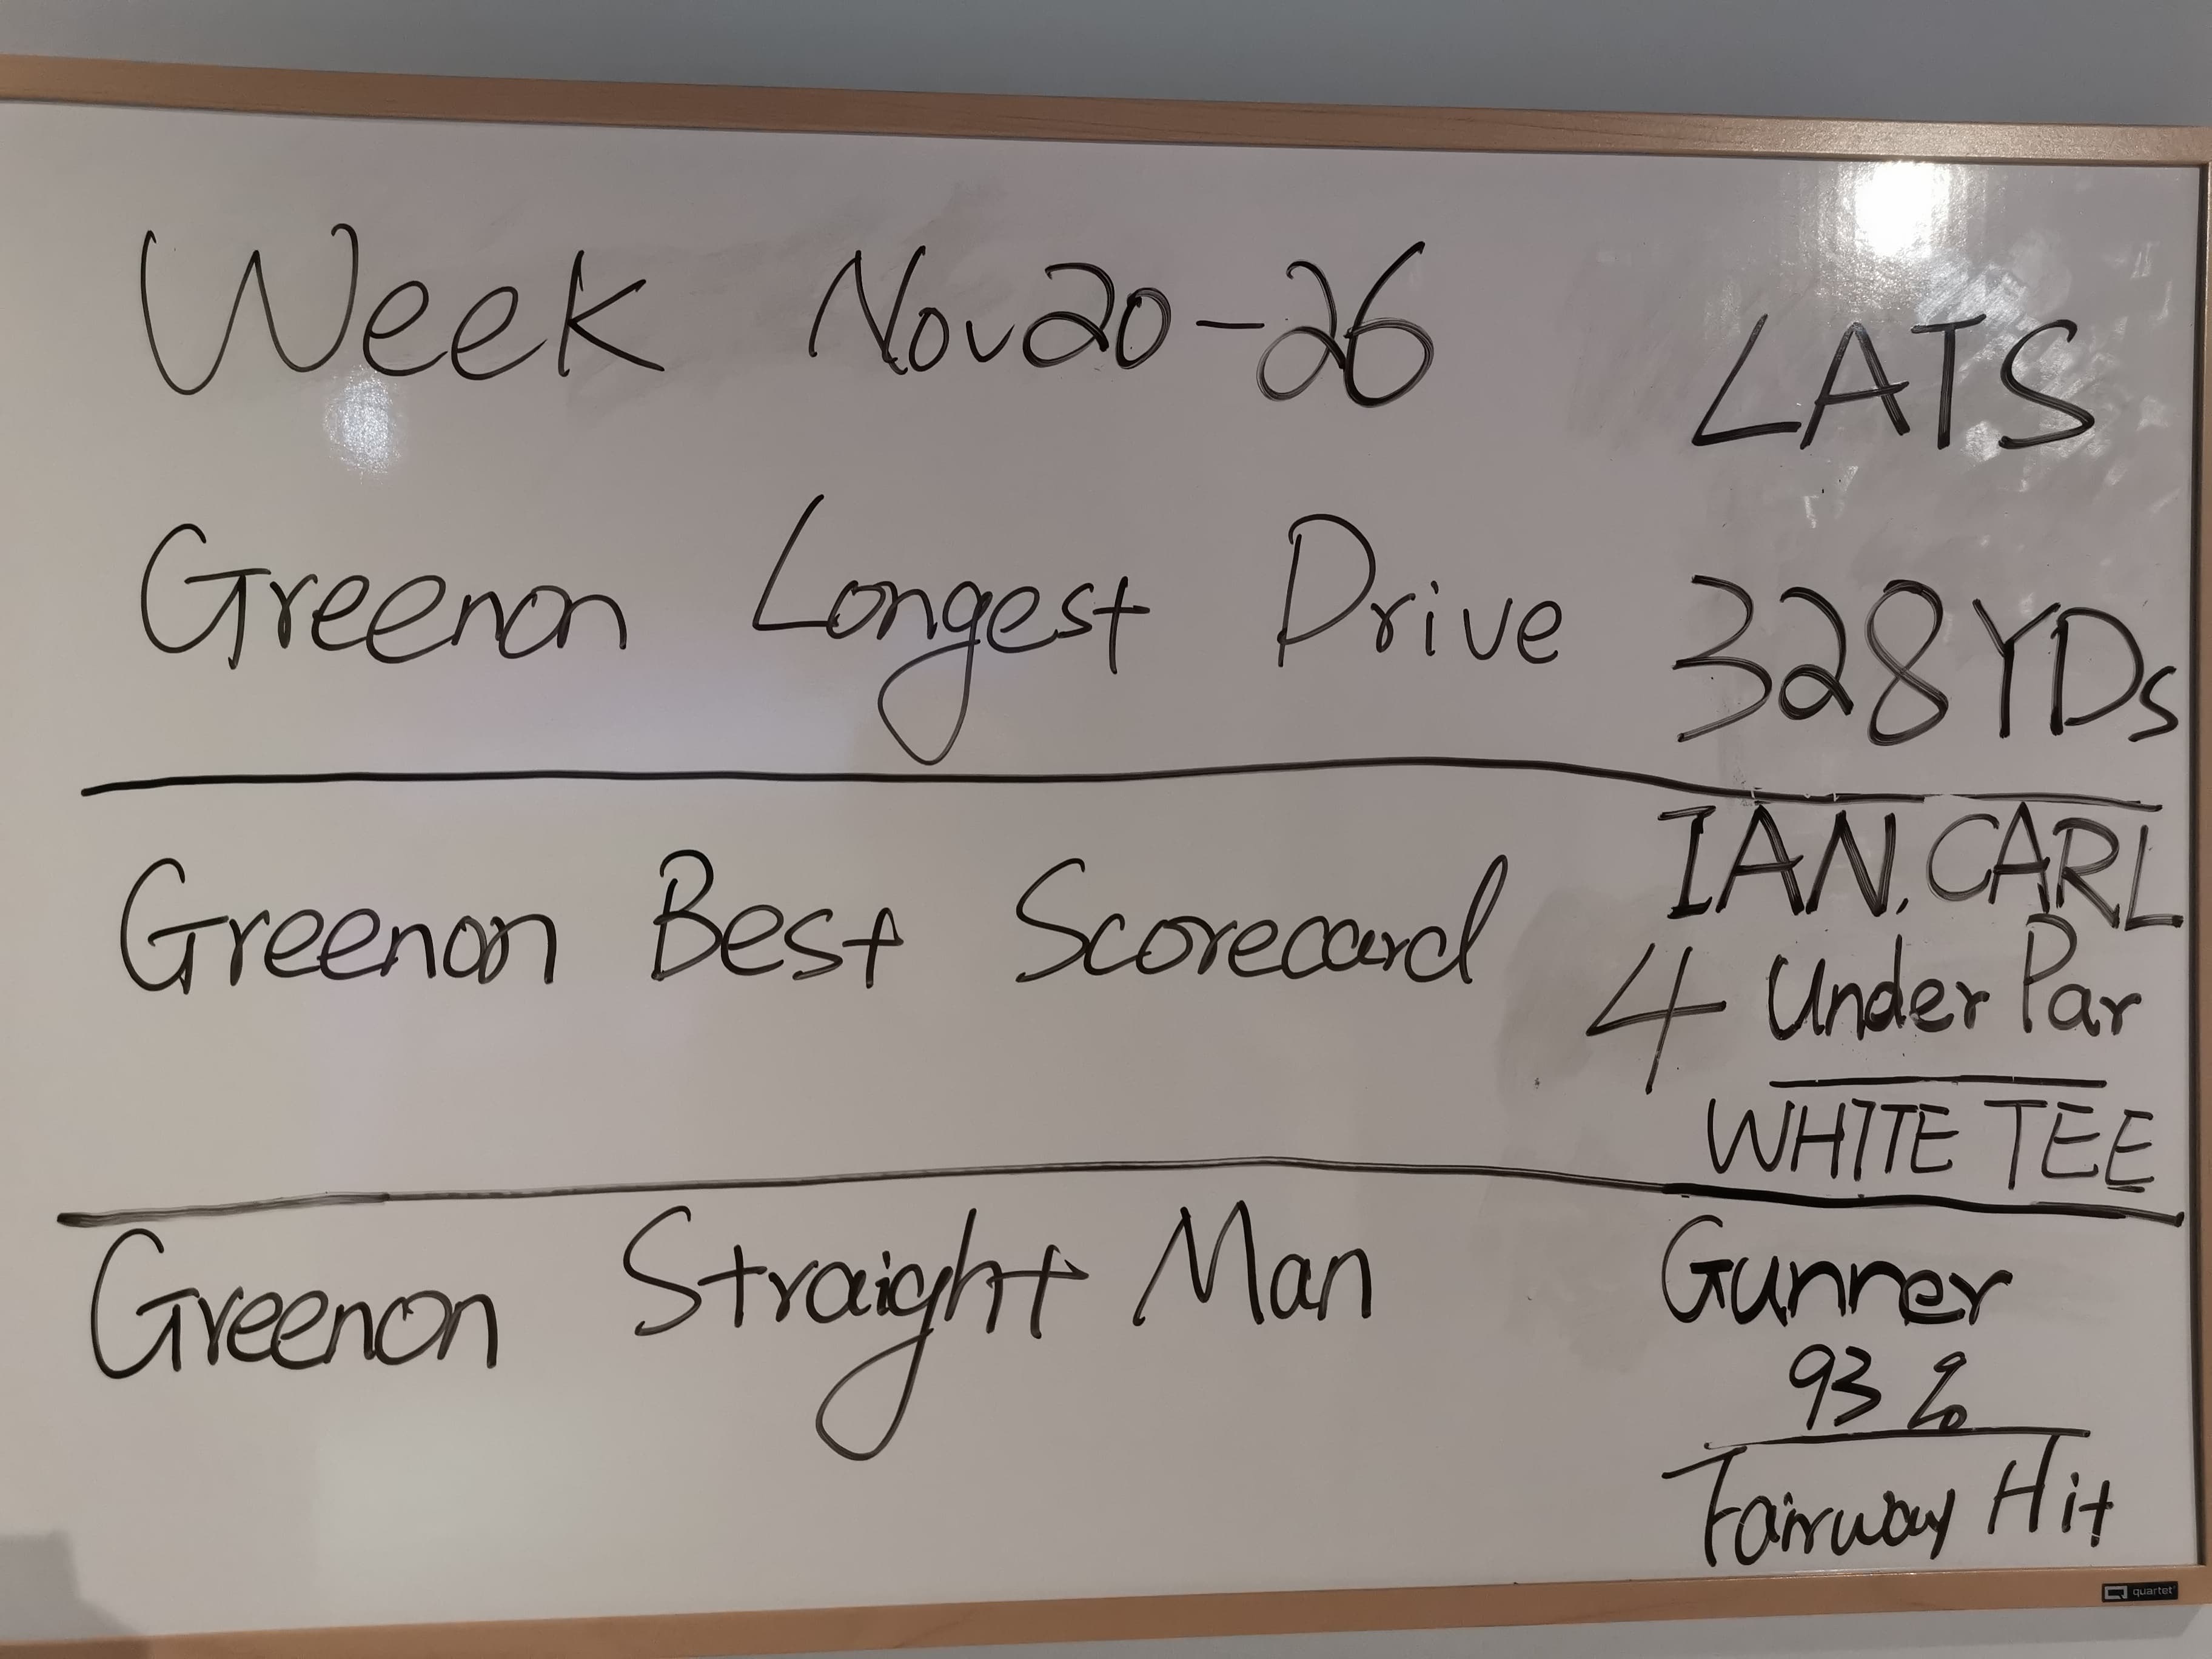 Week Nov 20-26 LATS
Greenon Longest Drive 328 YDs
IAN, CARL
Greenon Best Scorecard
4 Under Par
WHITE TEE
Greenon Straight Man Gunner
93 %
Fairway Hit
quartet